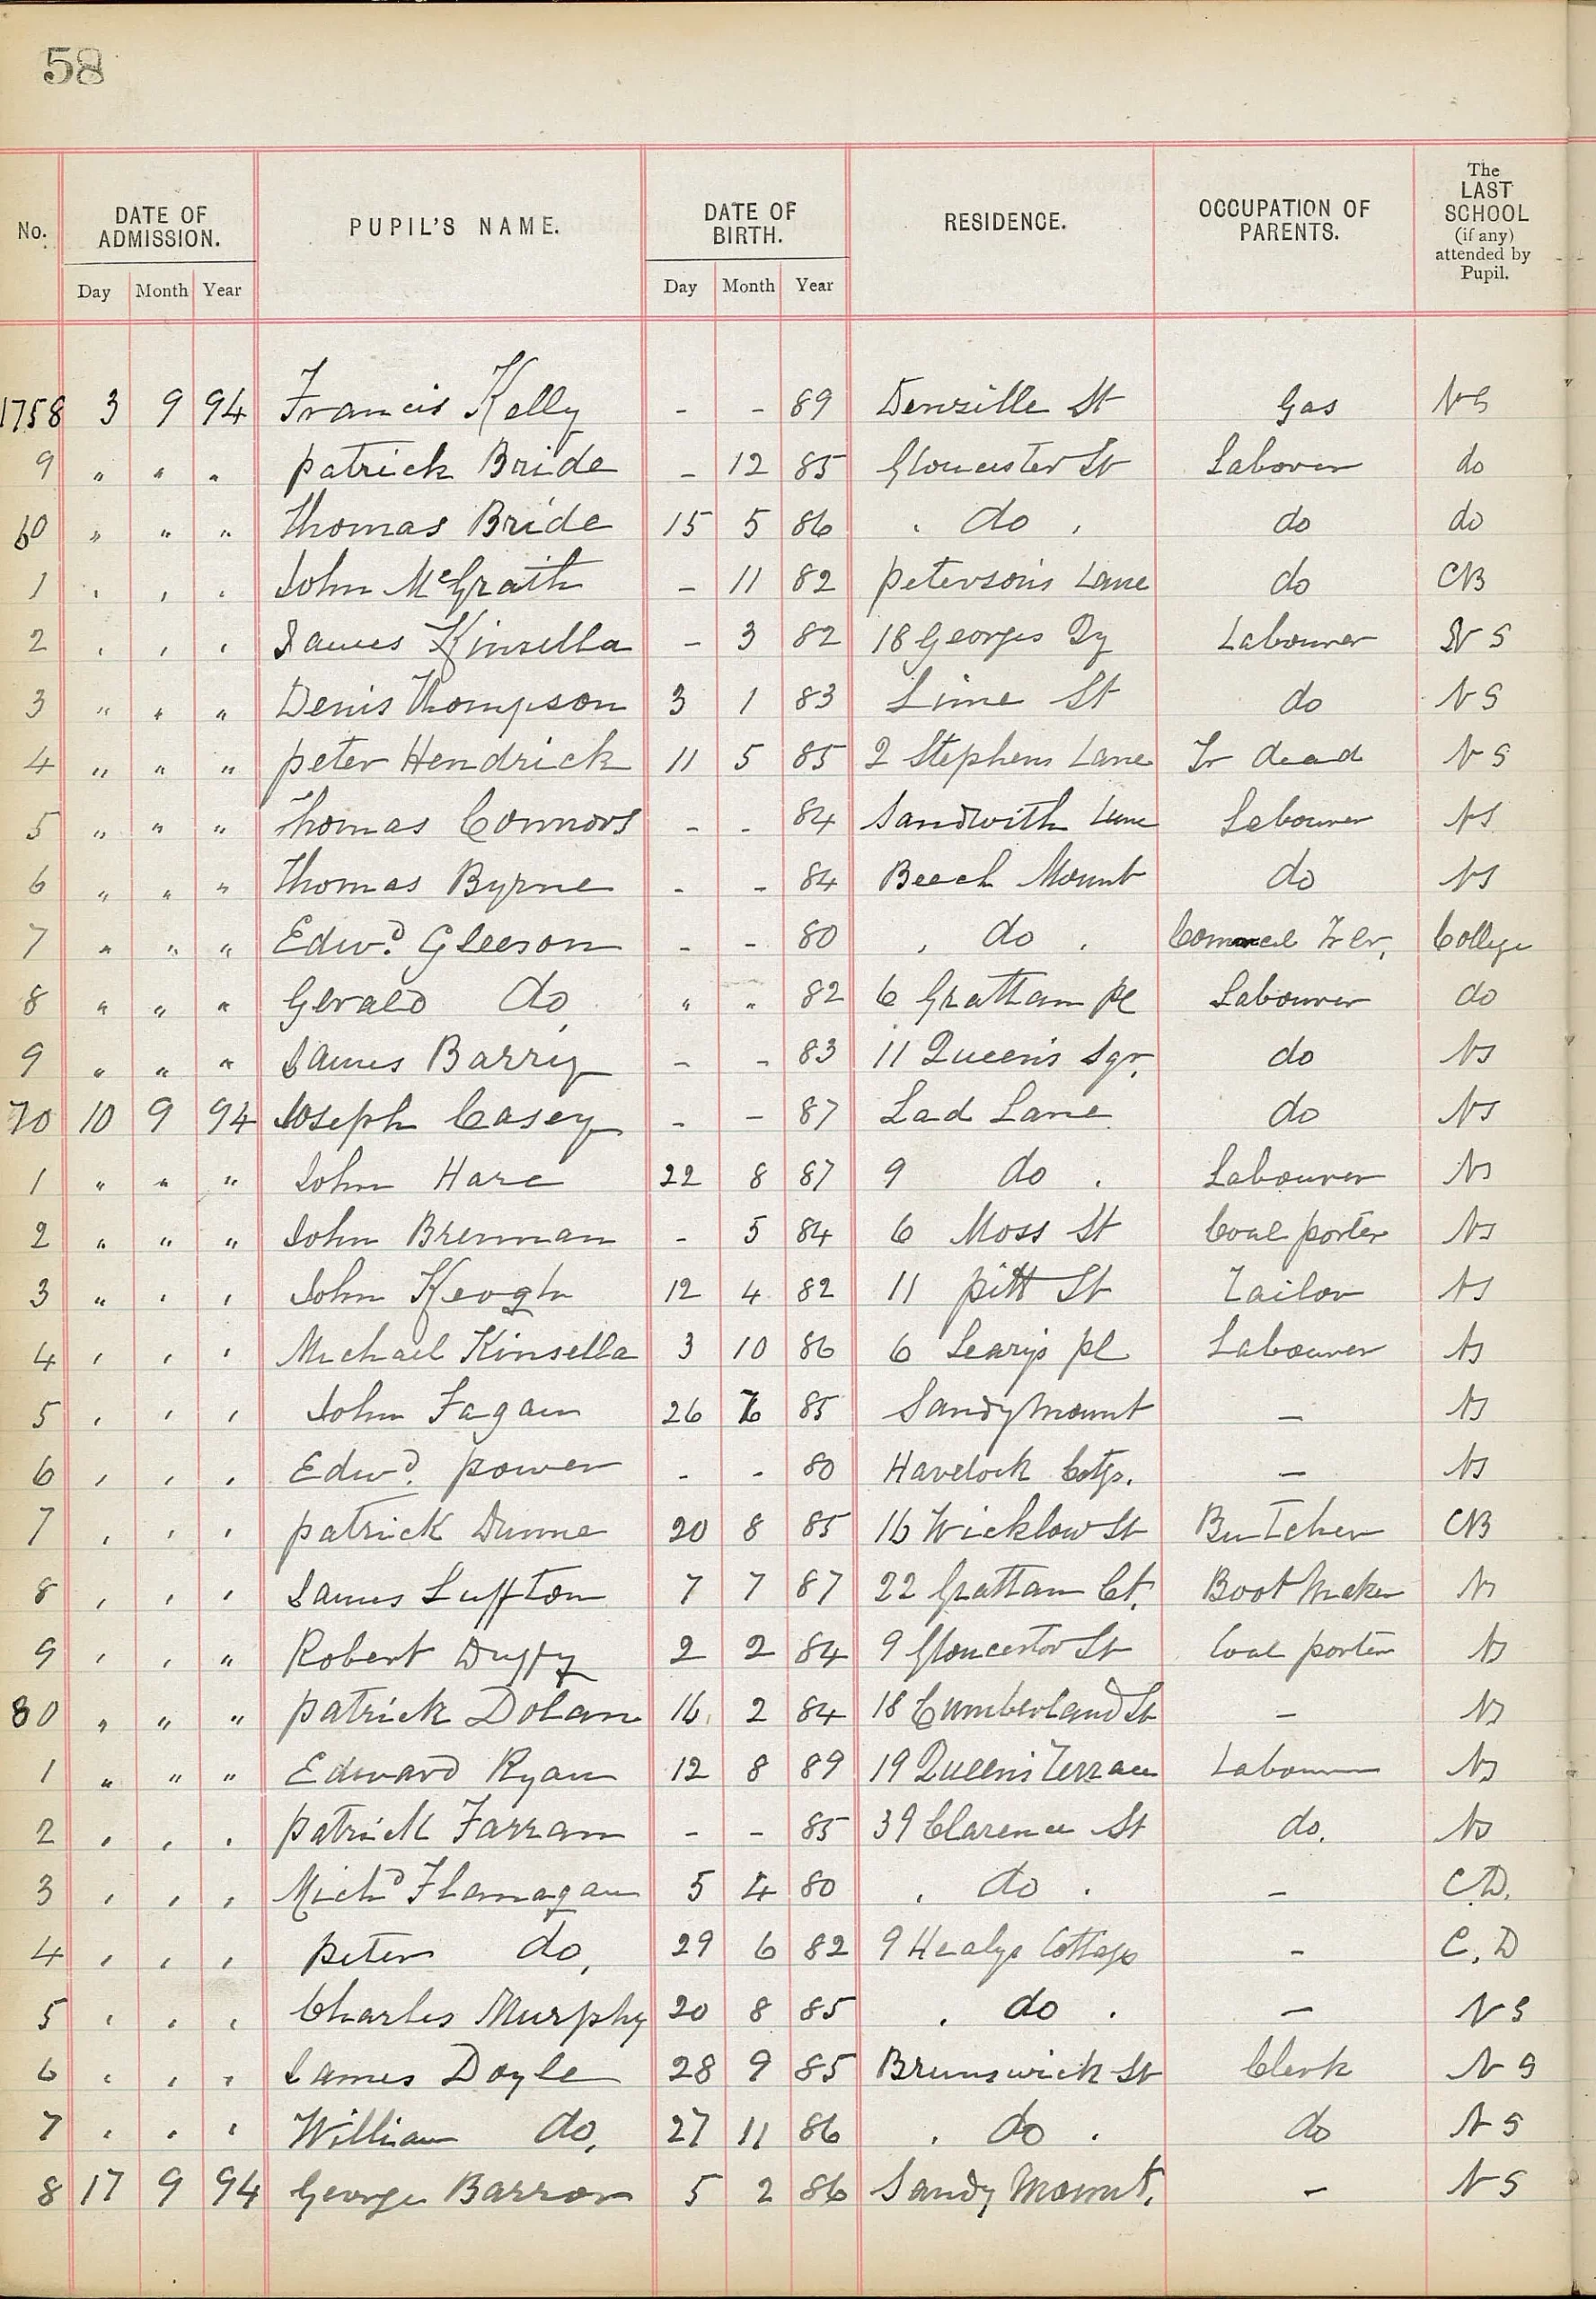 58
No. DATE OF ADMISSION. PUPIL'S NAME. DATE OF BIRTH. RESIDENCE. OCCUPATION OF PARENTS. The LAST SCHOOL (if any) attended by Pupil.
Day Month Year Day Month Year
1758 3 9 94 Francis Kelly - - 89 Denzille St Gas NS
9 " " " Patrick Bride - 12 85 Gloucester St Labourer do
60 " " " Thomas Bride 15 5 86 " do " do do
1 " " " John McGrath - 11 82 Peterson's Lane do CB
2 " " " James Kinsella - 3 82 18 Georges Qy Labourer NS
3 " " " Denis Thompson 3 1 83 Lime St do NS
4 " " " Peter Hendrick 11 5 85 2 Stephens Lane Fr dead NS
5 " " " Thomas Connors - - 84 Sandwith Lane Labourer NS
6 " " " Thomas Byrne - - 84 Beech Mount do NS
7 " " " Edwd. Gleeson - - 80 " do " Trlr. College
8 " " " Gerald do " " 82 6 Grattan Pl Labourer do
9 " " " James Barry - - 83 11 Queen's Sqr. do NS
70 10 9 94 Joseph Casey - - 87 Lad Lane do NS
1 " " " John Hare 22 8 87 9 do " Labourer NS
2 " " " John Brennan - 5 84 6 Moss St Coal porter NS
3 " " " John Keogh 12 4 82 11 Pitt St Tailor NS
4 " " " Michael Kinsella 3 10 86 6 Leary's Pl Labourer NS
5 " " " John Fagan 26 85 Sandymount - NS
6 " " " Edwd. Power - - 80 Havelock Cotgs. - NS
7 " " " Patrick Dunne 20 8 85 16 Wicklow St Butcher CB
8 " " " James Luffton 7 7 87 22 Grattan Ct. Boot Maker NS
9 " " " Robert Duffy 2 2 84 9 Gloucester St Coal porter NS
80 " " " Patrick Dolan 16 2 84 18 Cumberland St - NS
1 " " " Edward Ryan 12 8 89 19 Queen's Terrace Labourer NS
2 " " " Patrick Farran - - 85 39 Clarence St do. NS
3 " " " Michd Flanagan 5 4 80 " do " - C.D.
4 " " " Peter do, 29 6 82 9 Healys Cottages - C.D
5 " " " Charles Murphy 20 8 85 " do " - NS
6 " " " James Doyle 28 9 85 Brunswick St Clerk NS
7 " " " William do, 27 11 86 " do " do NS
8 17 9 94 George Barron 5 2 86 Sandy Mount. - NS